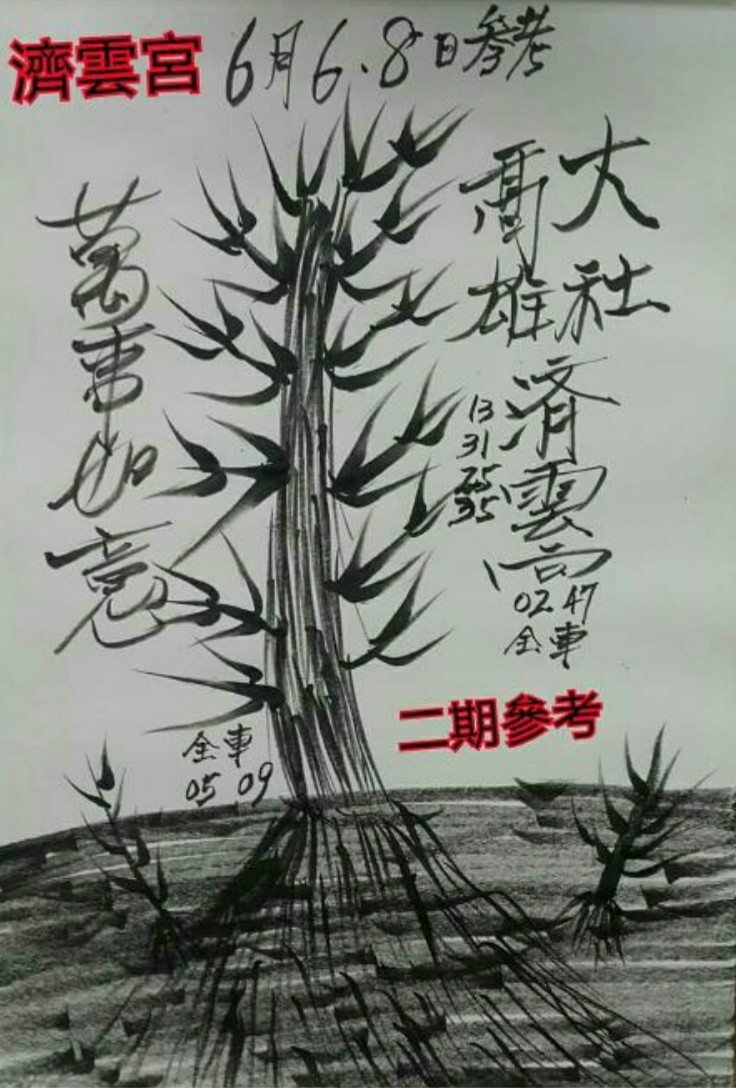 濟雲宮 6月6.8日參考
大社
高雄
濟雲宮
13
31
25
35
02 47
全車
萬事如意
二期參考
全車
05 09